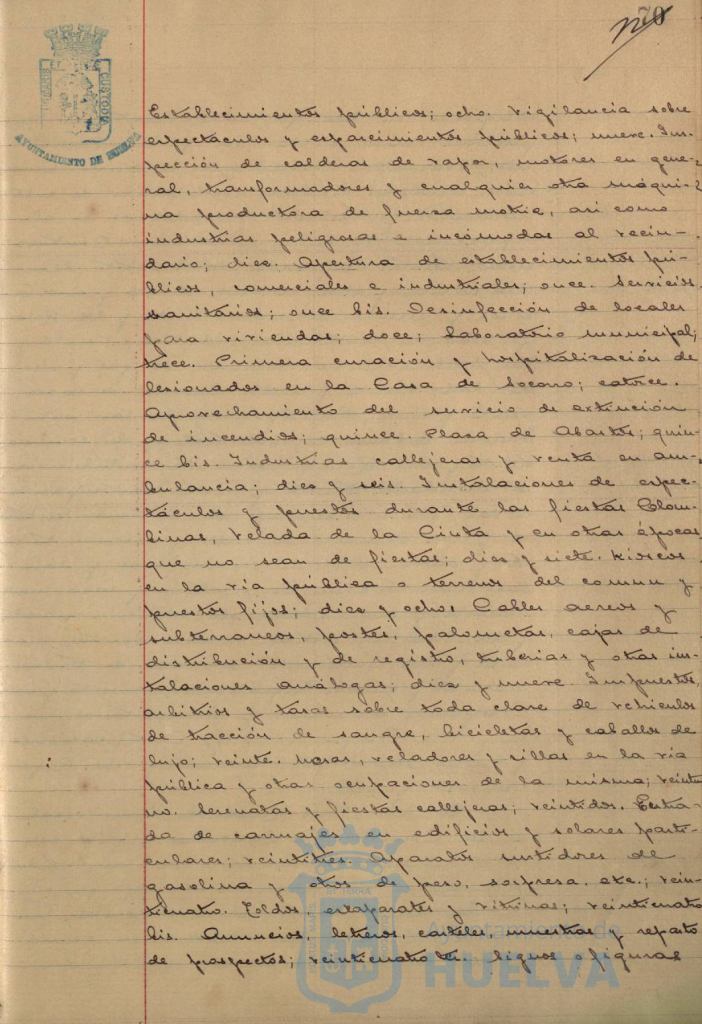 70
PORTUS MARIS ET TERRAE CUSTODIA
AYUNTAMIENTO DE HUELVA
Establecimientos públicos; ocho. Vigilancia sobre
espectáculos y esparcimientos públicos; nueve. Ins-
pección de calderas de vapor, motores en gene-
ral, transformadores y cualquier otra máqui-
na productora de fuerza motriz, asi como
industrias peligrosas e incómodas al vecin-
dario; diez. Apertura de establecimientos pú-
blicos, comerciales e industriales; once. Servicios
sanitarios; once bis. Desinfección de locales
para viviendas; doce; Laboratorio municipal;
trece. Primera curación y hospitalización de
lesionados en la Casa de Socorro; catorce.
Aprovechamiento del servicio de extinción
de incendios; quince. Plaza de Abastos; quin-
ce bis. Industrias callejeras y venta en am-
bulancia; diez y seis. Instalaciones de espec-
táculos y puestos durante las fiestas Colom-
binas, Velada de la Cinta y en otras épocas
que no sean de fiestas; diez y siete. Kioscos
en la vía pública o terrenos del comun y
puestos fijos; diez y ocho: Cables aereos y
subterraneos, postes, palometas, cajas de
distribución y de registro, tuberias y otras ins-
talaciones análogas; diez y nueve. Impuestos,
arbitrios y tasas sobre toda clase de vehiculos
de tracción de sangre, bicicletas y caballos de
lujo; veinte. Mesas, veladores y sillas en la vía
pública y otras ocupaciones de la misma; veintiu
no. Serenatas y fiestas callejeras; veintidos. Entra-
da de carruajes en edificios y solares parti-
culares; veintitres. Aparatos surtidores de
gasolina y otros de peso, sorpresa, etc.; vein-
ticuatro. Toldos, escaparates y vitrinas; veinticuatro
bis. Anuncios, letreros, carteles, muestras y reparto
de prospectos; veinticuatro ter. Signos o figuras
Ayuntamiento de
HUELVA